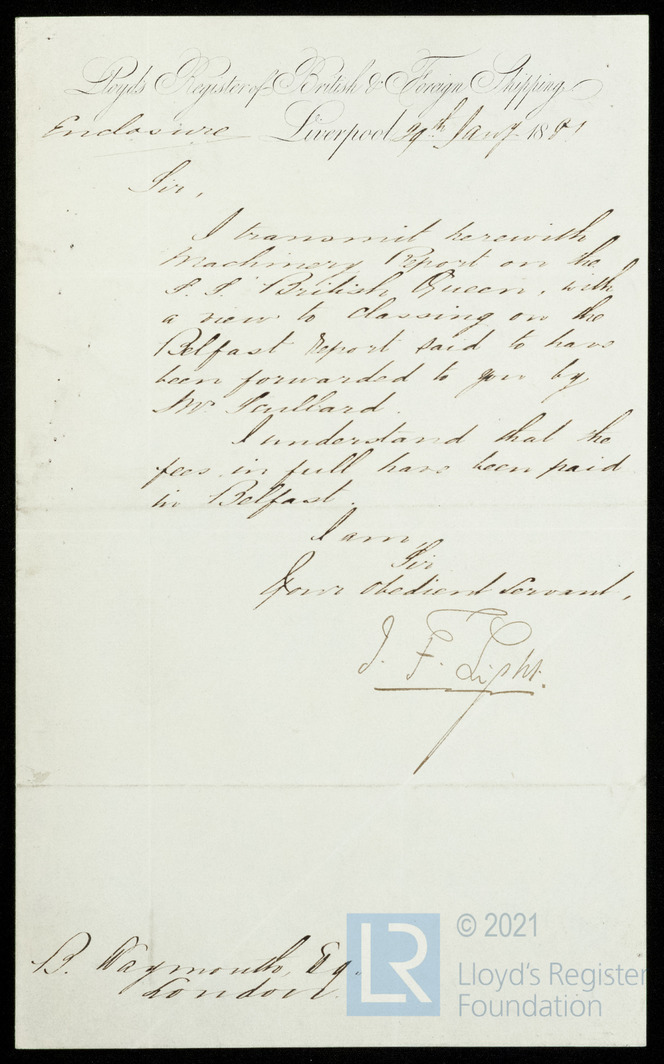 Lloyd's Register of British & Foreign Shipping
Enclosure Liverpool 29th Jany. 1881
Sir,
I transmit herewith
Machinery Report on the
S.S. "British Queen, with
a view to classing on the
Belfast report said to have
been forwarded to you by
Mr
I understand that the
fees in full have been paid
in Belfast.
I am,
Sir
Your obedient Servant,
J. F. Light.
B. Waymouth, Esq.
London.
LR
© 2021
Lloyd's Register
Foundation